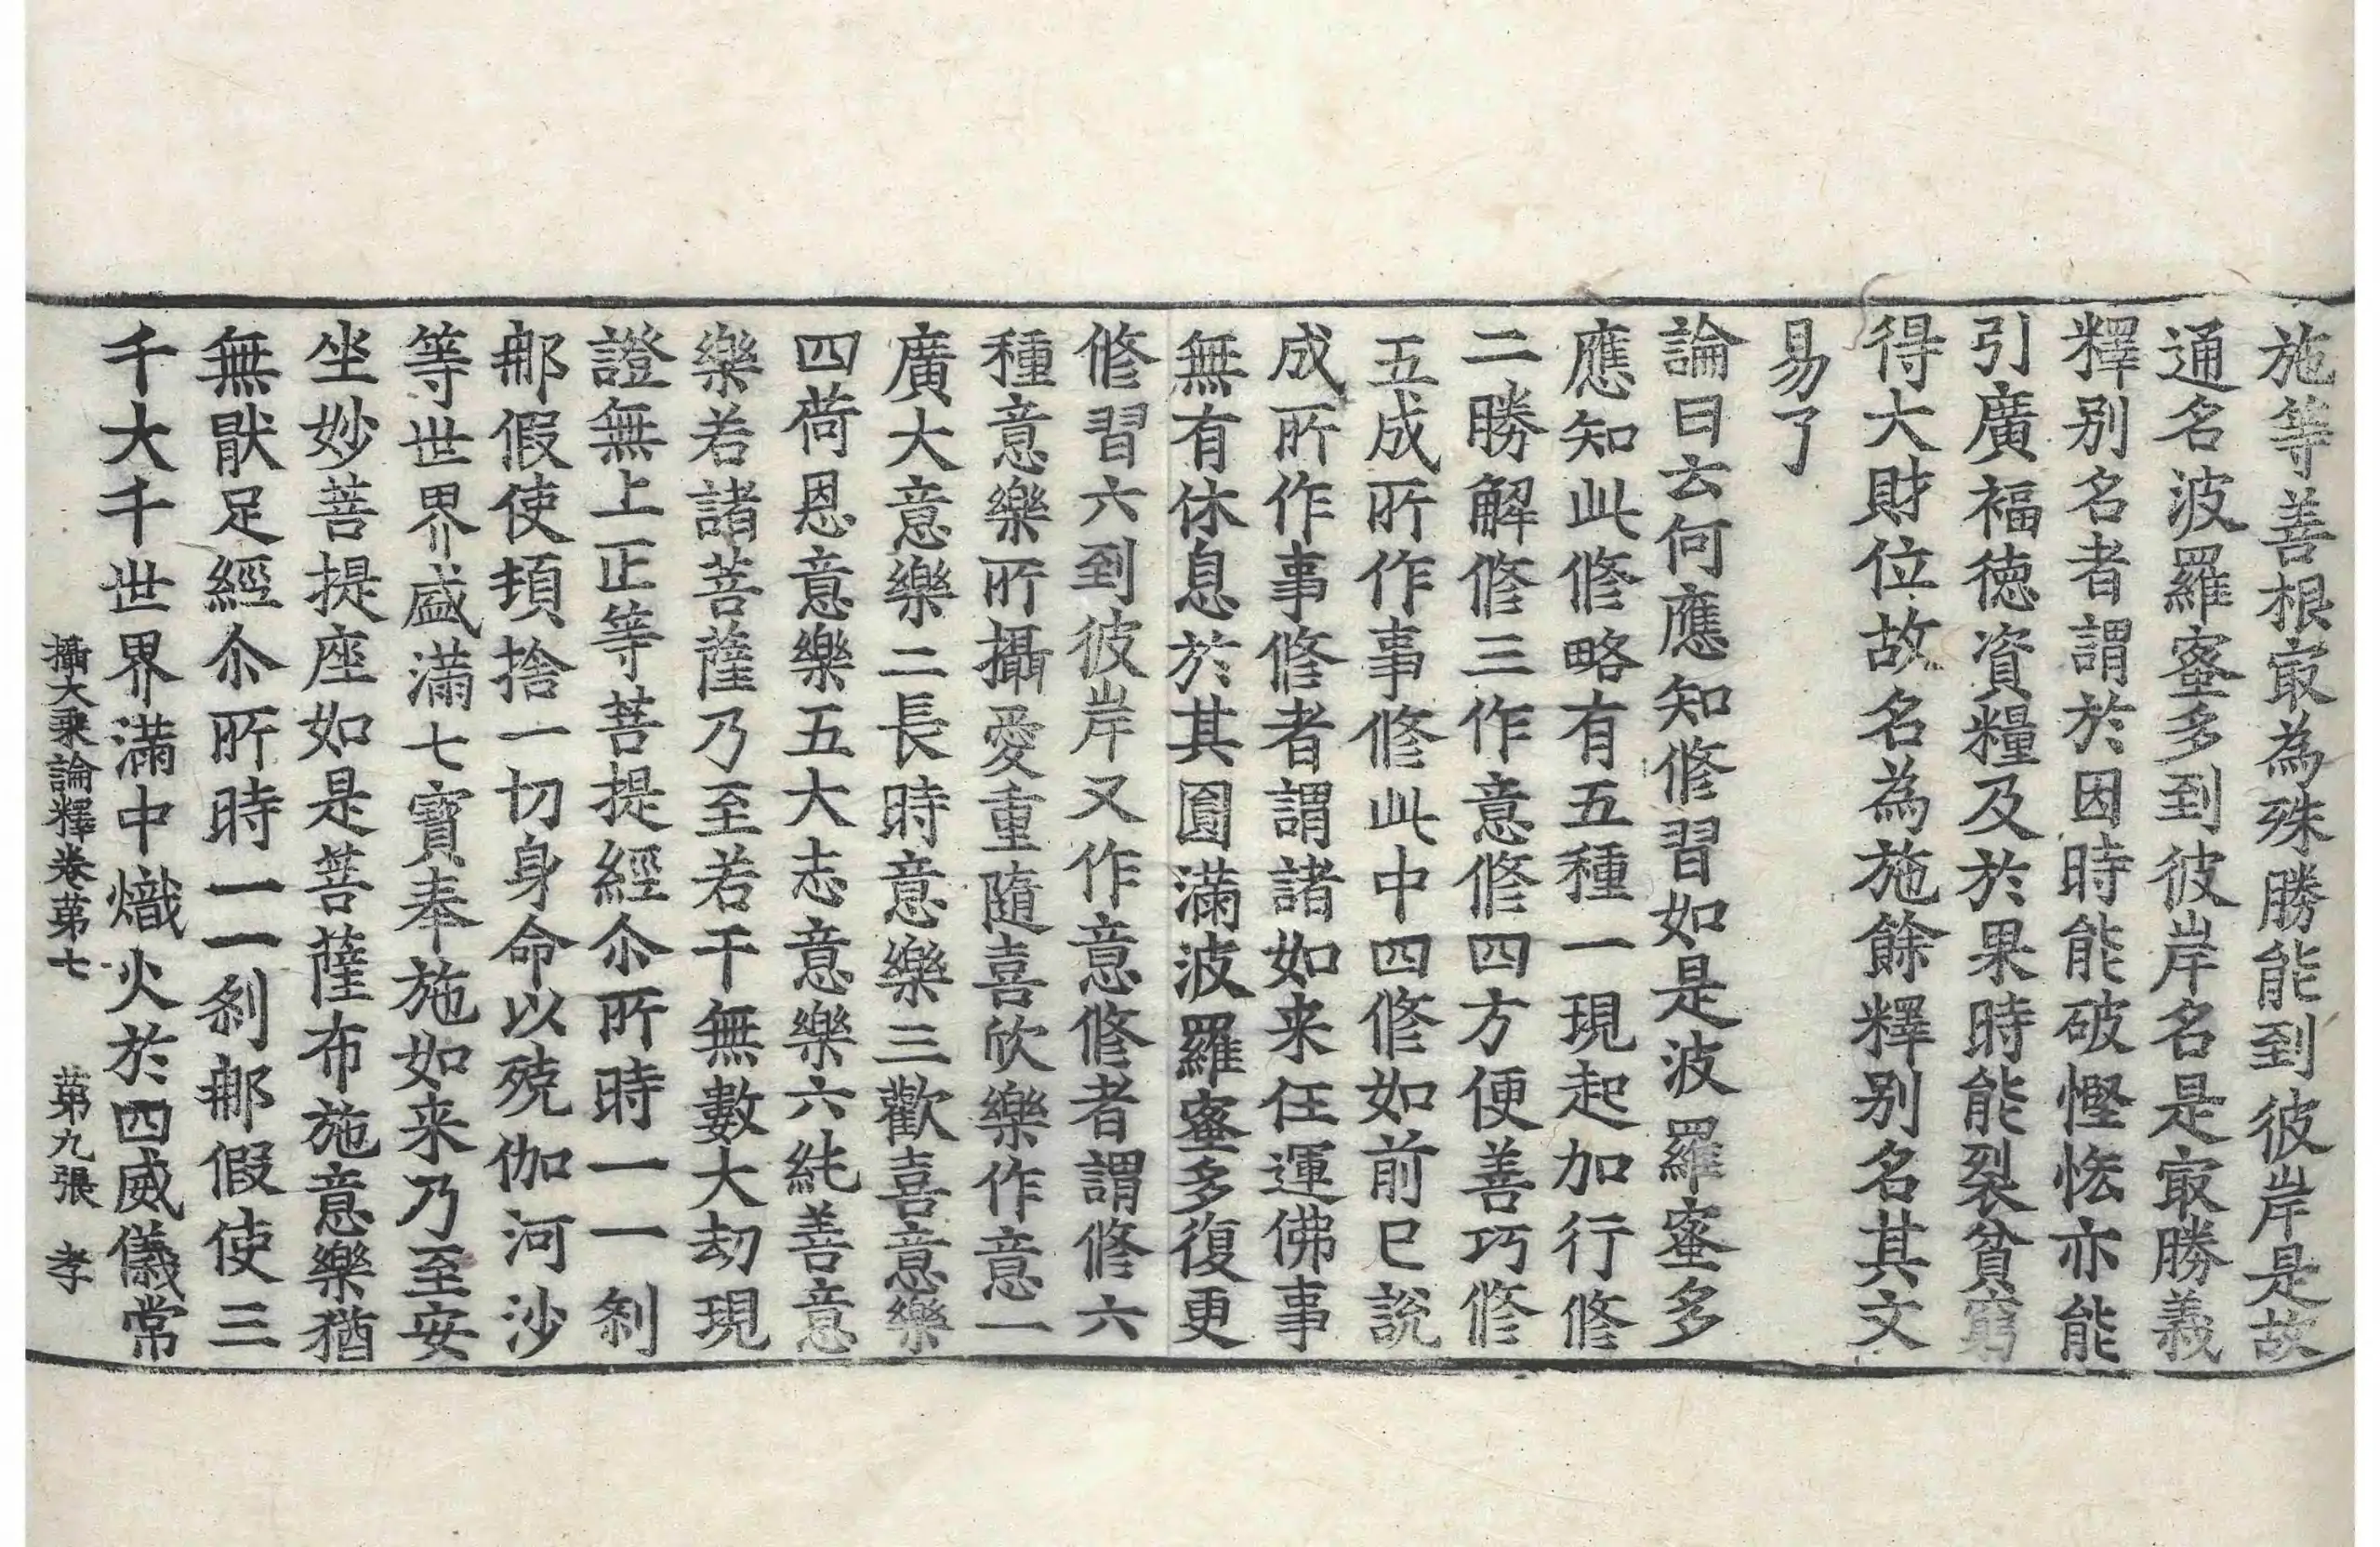 施等善根㝡為殊勝能到彼岸是故
通名波羅蜜多到彼岸名是㝡勝義
釋別名者謂於因時能破慳悋亦能
引廣福德資糧及於果時能裂貧窮
得大財位故名為施餘釋別名其文
易了
論曰云何應知修習如是波羅蜜多
應知此修略有五種一現起加行修
二勝解修三作意修四方便善巧修
五成所作事修此中四修如前已說
成所作事修者謂諸如来任運佛事
無有休息於其圓滿波羅蜜多復更
修習六到彼岸又作意修者謂修六
種意樂所攝愛重隨喜欣樂作意一
廣大意樂二長時意樂三歡喜意樂
四荷恩意樂五大志意樂六純善意
樂若諸菩薩乃至若干無數大劫現
證無上正等菩提經尒所時一一刹
那假使頓捨一切身命以殑伽河沙
等世界盛滿七寳奉施如来乃至安
坐妙菩提座如是菩薩布施意樂猶
無猒足經尒所時一一刹那假使三
千大千世界滿中熾火於四威儀常
攝大乘論釋卷苐七 苐九張 孝